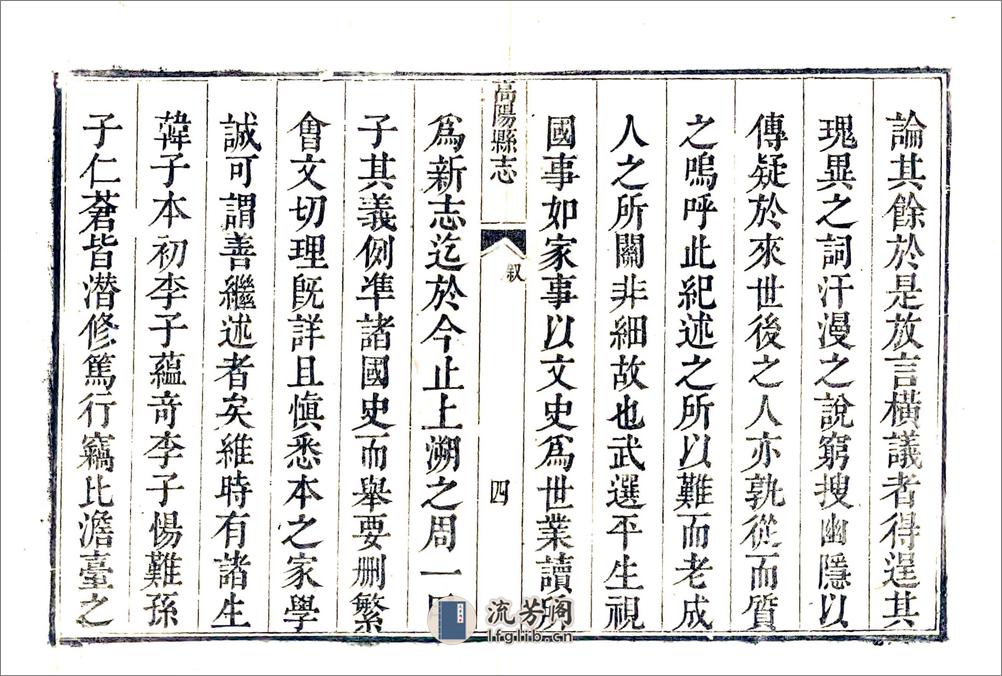 論其餘於是放言橫議者得逞其
瑰異之詞汗漫之說窮搜幽隱以
傳疑於來世後之人亦孰從而質
之嗚呼此紀述之所以難而老成
人之所關非細故也武選平生視
國事如家事以文史爲世業讀所
高陽縣志
叙
四
爲新志迄於今止上溯之周一
子其義例準諸國史而舉要刪繁
會文切理旣詳且愼悉本之家學
誠可謂善繼述者矣維時有諸生
韓子本初李子蘊奇李子惕難孫
子仁蒼皆潜修篤行竊比澹臺之
流芳阁
lfglib.cn